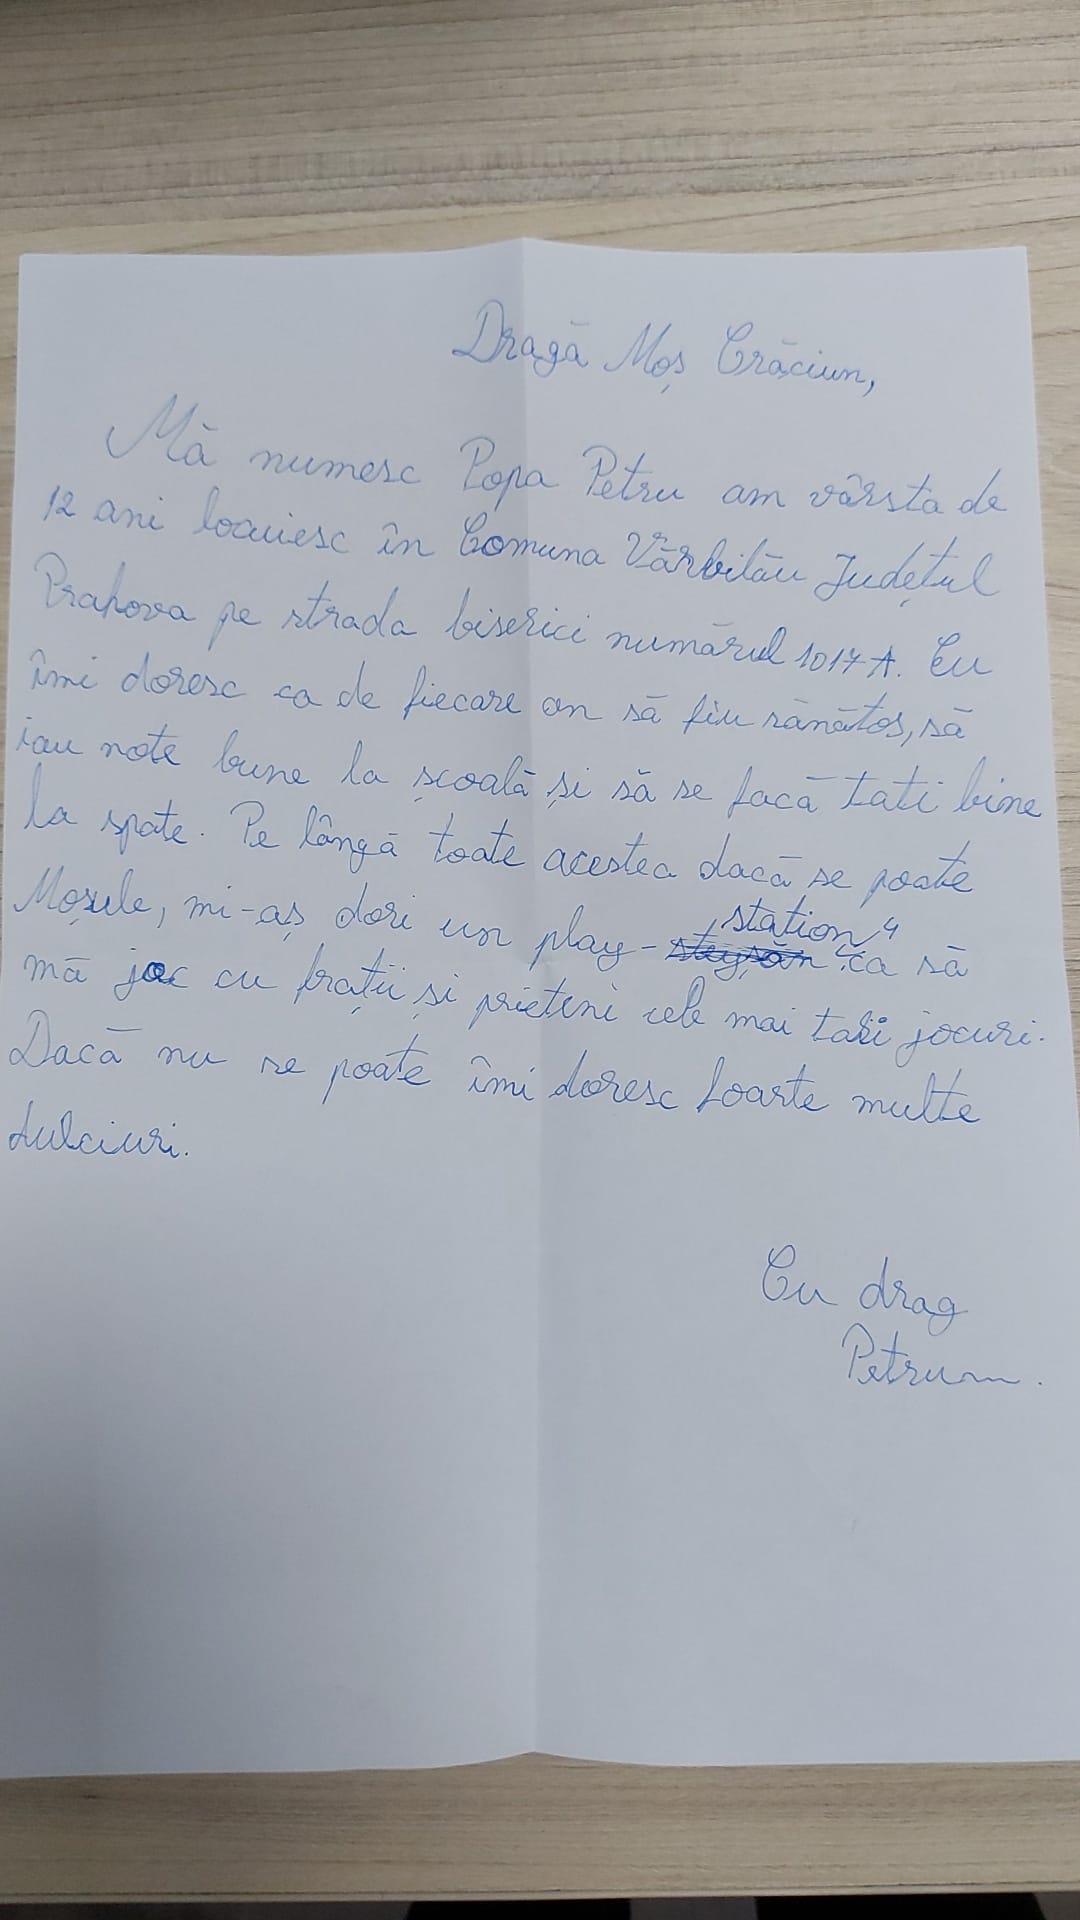 Dragă Moș Crăciun,
Mă numesc Popa Petru am vârsta de
12 ani locuiesc în Comuna Vărbilău Județul
Prahova pe strada biserici numărul 1017 A. Eu
îmi doresc ca de fiecare an să fiu sănătos, să
iau note bune la școală și să se facă tati bine
la spate. Pe lângă toate acestea dacă se poate
station 4
Moșule, mi-aș dori un play- ca să
mă joc cu frații și prieteni cele mai tari jocuri.
Dacă nu se poate îmi doresc foarte multe
dulciuri.
Cu drag